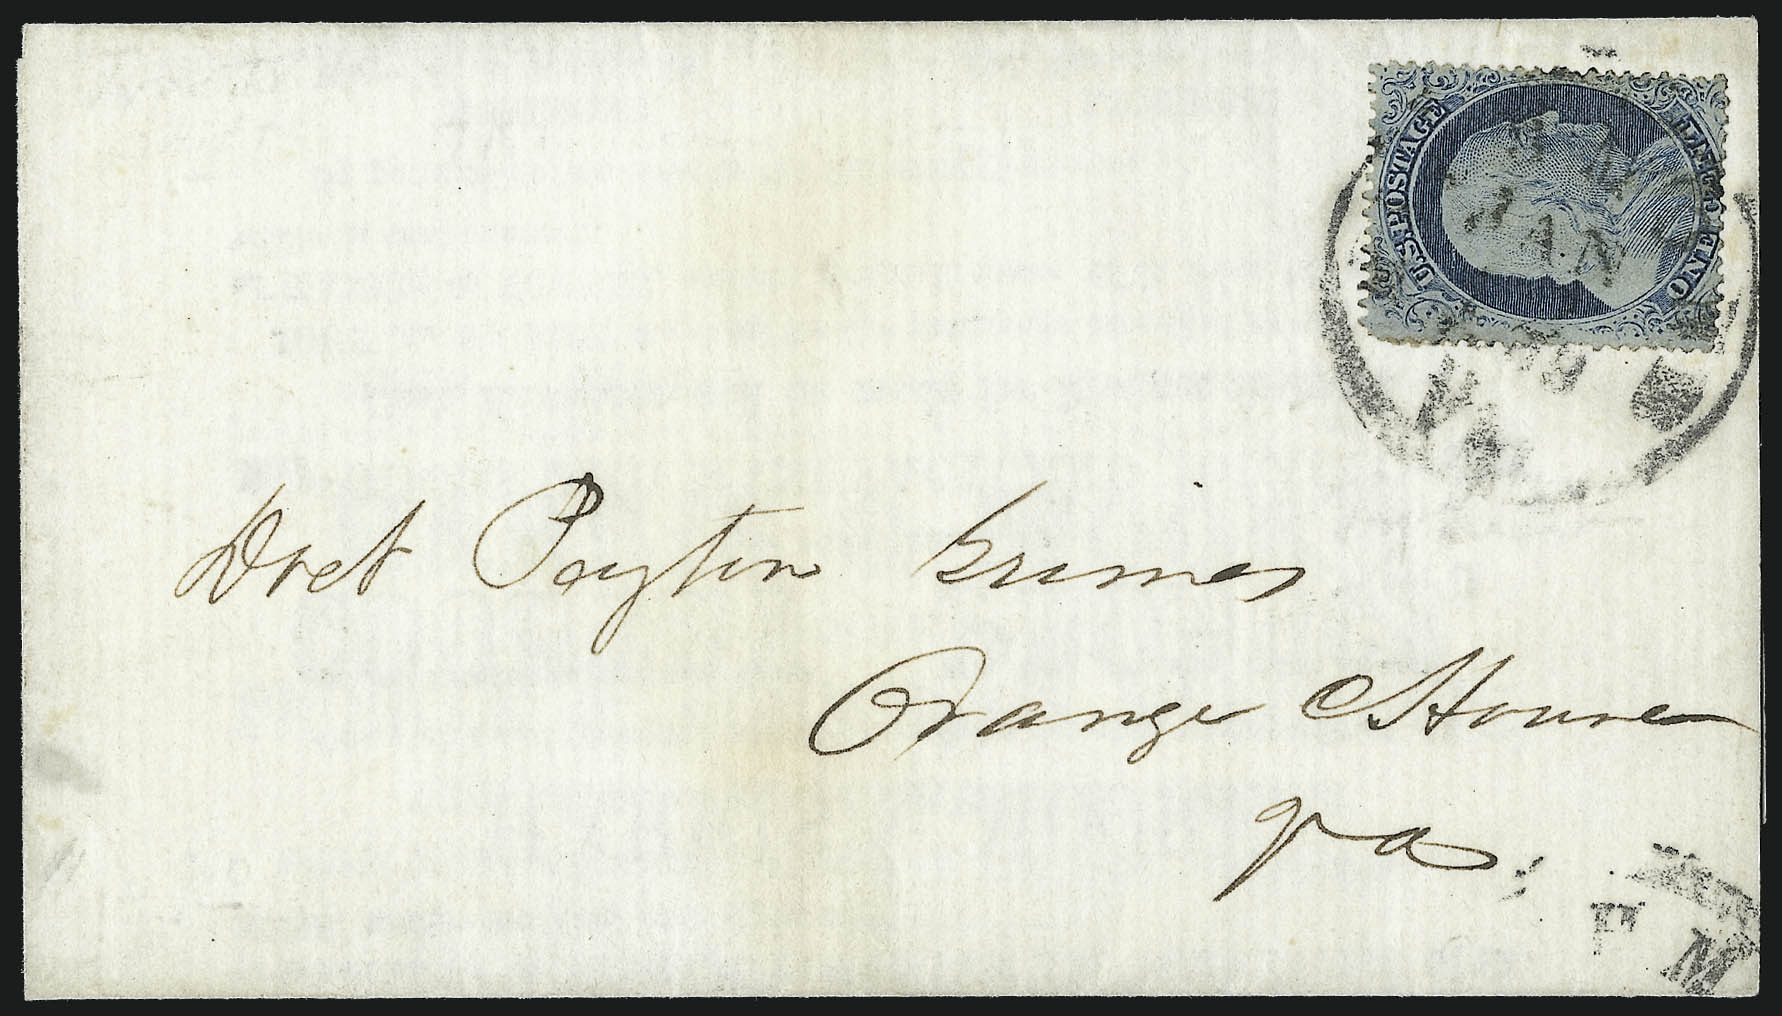 U.S. POSTAGE
ONE CENT
JAN
VA
Doct Peyton Grimes
Orange C House
Va.